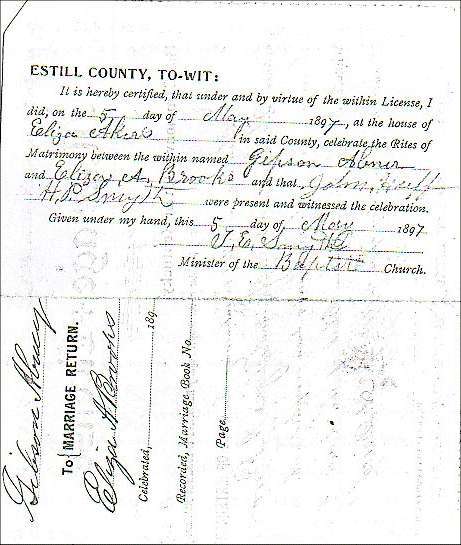 ESTILL COUNTY, TO-WIT:
It is hereby certified, that under and by virtue of the within License, I
did, on the 5 day of May 1897, at the house of
Eliza Akers in said County, celebrate the Rites of
Matrimony between the within named Gipson Abner
and Eliza A. Brooks and that John Huff
H. P. Smyth were present and witnessed the celebration.
Given under my hand, this 5 day of, May 1897
Smythe
Minister of the Baptist Church.
Gibson Abney
To MARRIAGE RETURN.
Eliza A Brooks
Celebrated, 189
Recorded, Marriage Book No.
Page